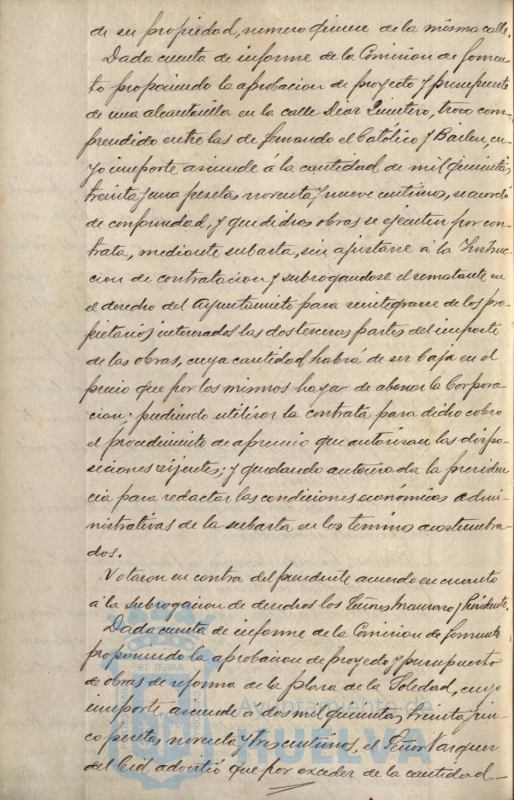 de su propiedad, numero quince de la misma calle.
Dada cuenta de informe de la Comision de fomen-
to proponiendo la aprobacion de proyecto y presupuesto
de una alcantarilla en la calle Diaz Quintero, trozo com-
prendido entre las de Fernando el Católico y Bailen, cu-
yo importe asciende á la cantidad de mil quinientas
treinta y una pesetas noventa y nueve centimos, se acordó
de conformidad, y que dichas obras se ejecuten por con-
trata, mediante subasta, sin ajustarse á la Instruc-
cion de contratacion y subrogandose el rematante en
el derecho del Ayuntamiento para reintegrarse de los pro-
pietarios interesados las dos terceras partes del importe
de las obras, cuya cantidad habrá de ser baja en el
precio que por los mismos haya de abonar la Corpora-
cion; pudiendo utilizar la contrata para dicho cobro
el procedimiento de apremio que autorizan las dispo-
siciones vijentes; y quedando autorizada la presiden-
cia para redactar las condiciones económico admi-
nistrativas de la subasta en los terminos acostumbra-
dos.
Votaron en contra del precedente acuerdo en cuanto
á la subrogacion de derechos los Señores y Presidente.
Dada cuenta de informe de la Comision de fomento
proponiendo la aprobacion de proyecto y presupuesto
de obras de reforma de la plaza de la Soledad, cuyo
importe asciende á dos mil quinientas treinta y cin-
co pesetas noventa y tres centimos, el Señor Vazquez
del Cid advirtió que por exceder de la cantidad
Ayuntamiento de
HUELVA